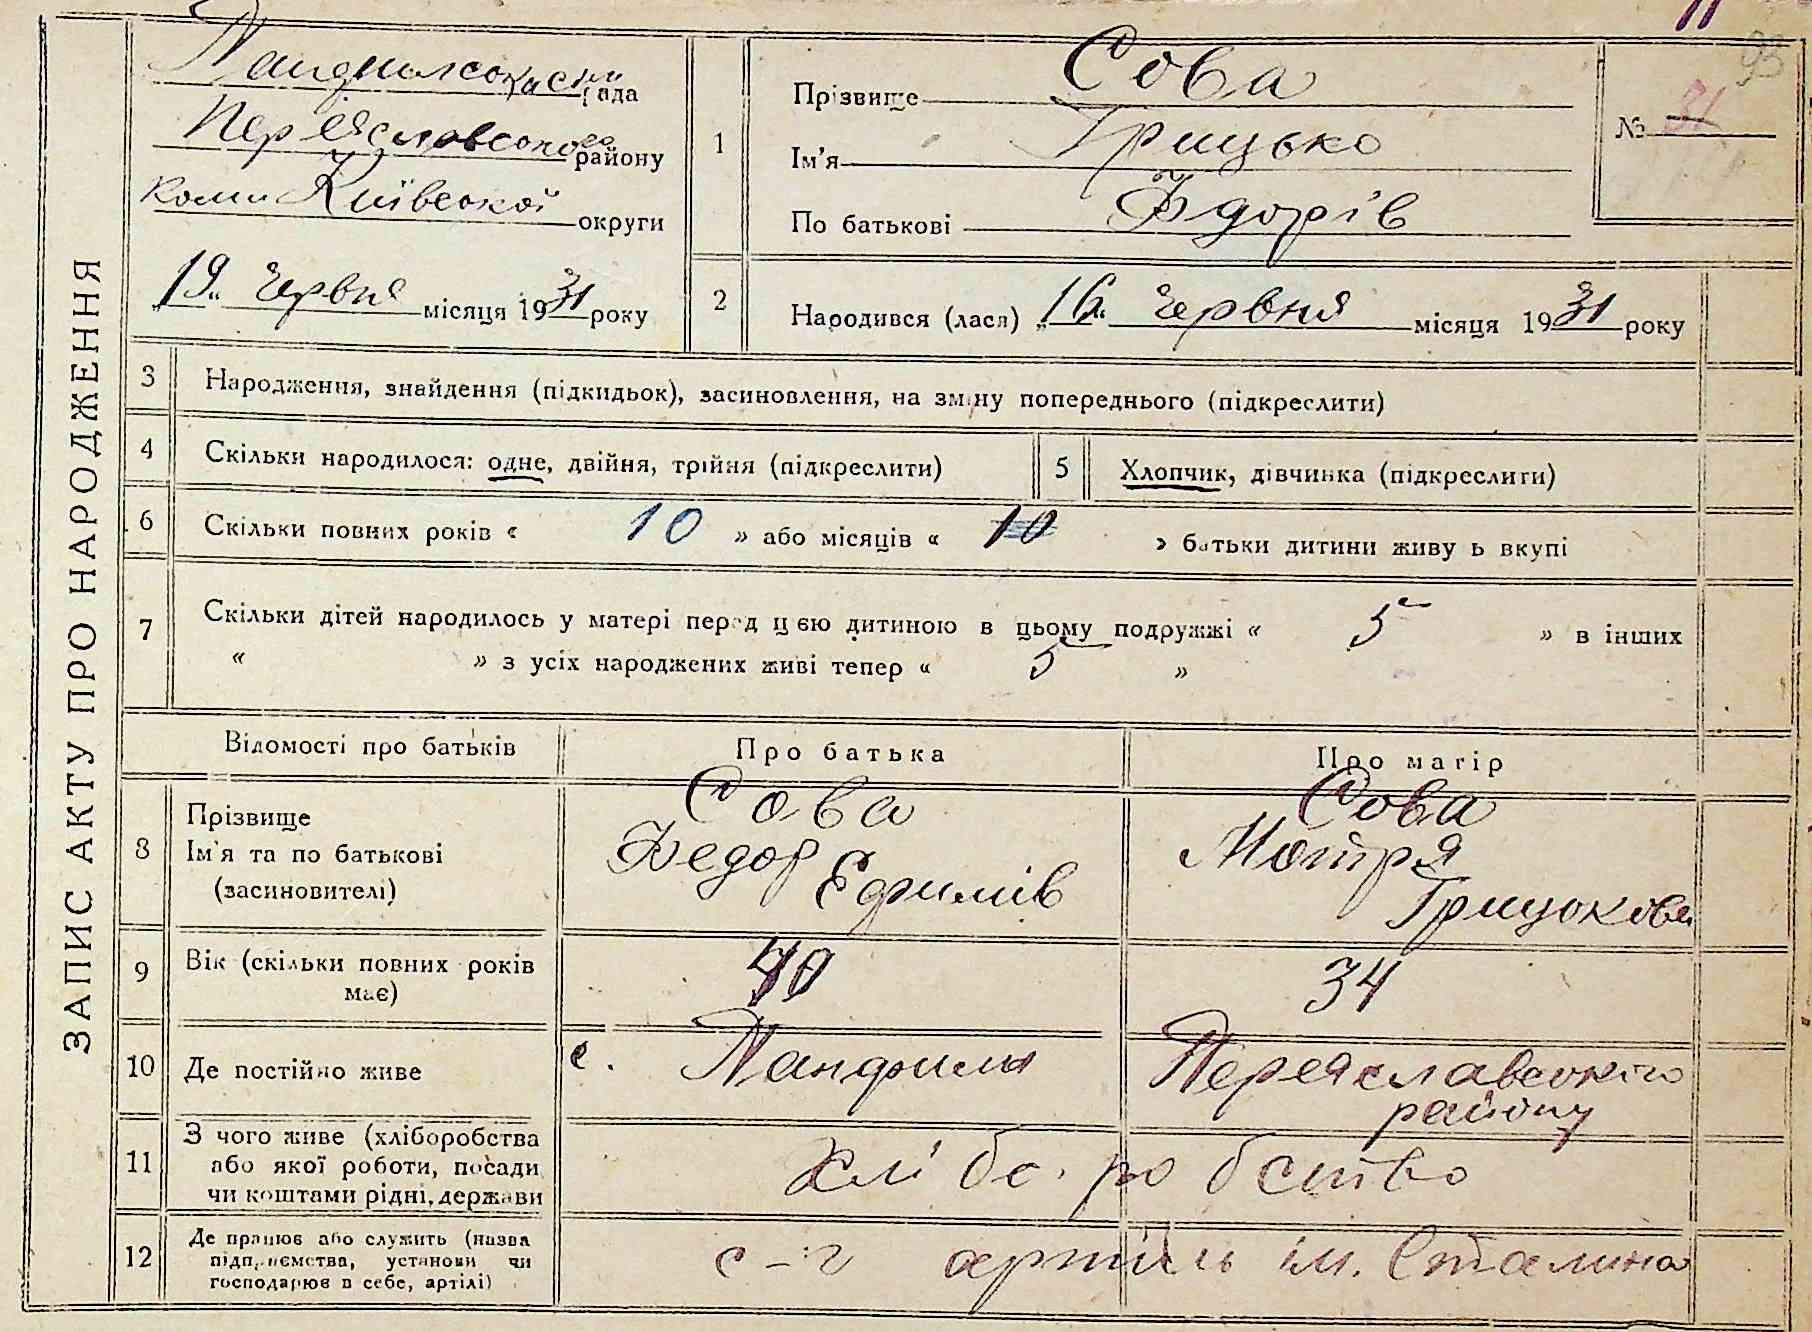 93
ЗАПИС АКТУ ПРО НАРОДЖЕННЯ
рада
Переяславського району
Київської округи
"19" Червня місяця 1931 року
1
Прізвище Сова
Ім'я Грицько
По батькові Ѳдорів
№ 31
2
Народився (лася) "16" Червня місяця 1931 року
3 Народження, знайдення (підкидьок), засиновлення, на зміну попереднього (підкреслити)
4 Скільки народилося: одне, двійня, трійня (підкреслити)
5 Хлопчик, дівчинка (підкреслити)
6 Скільки повних років « 10 » або місяців « 10 » батьки дитини живуть вкупі
7 Скільки дітей народилось у матері перед цією дитиною в цьому подружжі « 5 » в інших
« » з усіх народжених живі тепер « 5 »
Відомості про батьків Про батька Про матір
8 Прізвище Ім'я та по батькові (засиновителі)
Сова Федор Ефимів
Сова Мотря Грицькова
9 Вік (скільки повних років має) 40 34
10 Де постійно живе с. Панфили Переяславського району
11 З чого живе (хліборобства
або якої роботи, посади
чи коштами рідні, держави
хлібо робство
12 Де працює або служить (назва
підприємства, установи чи
господарює в себе, артілі)
с-г артіль ім. Сталина